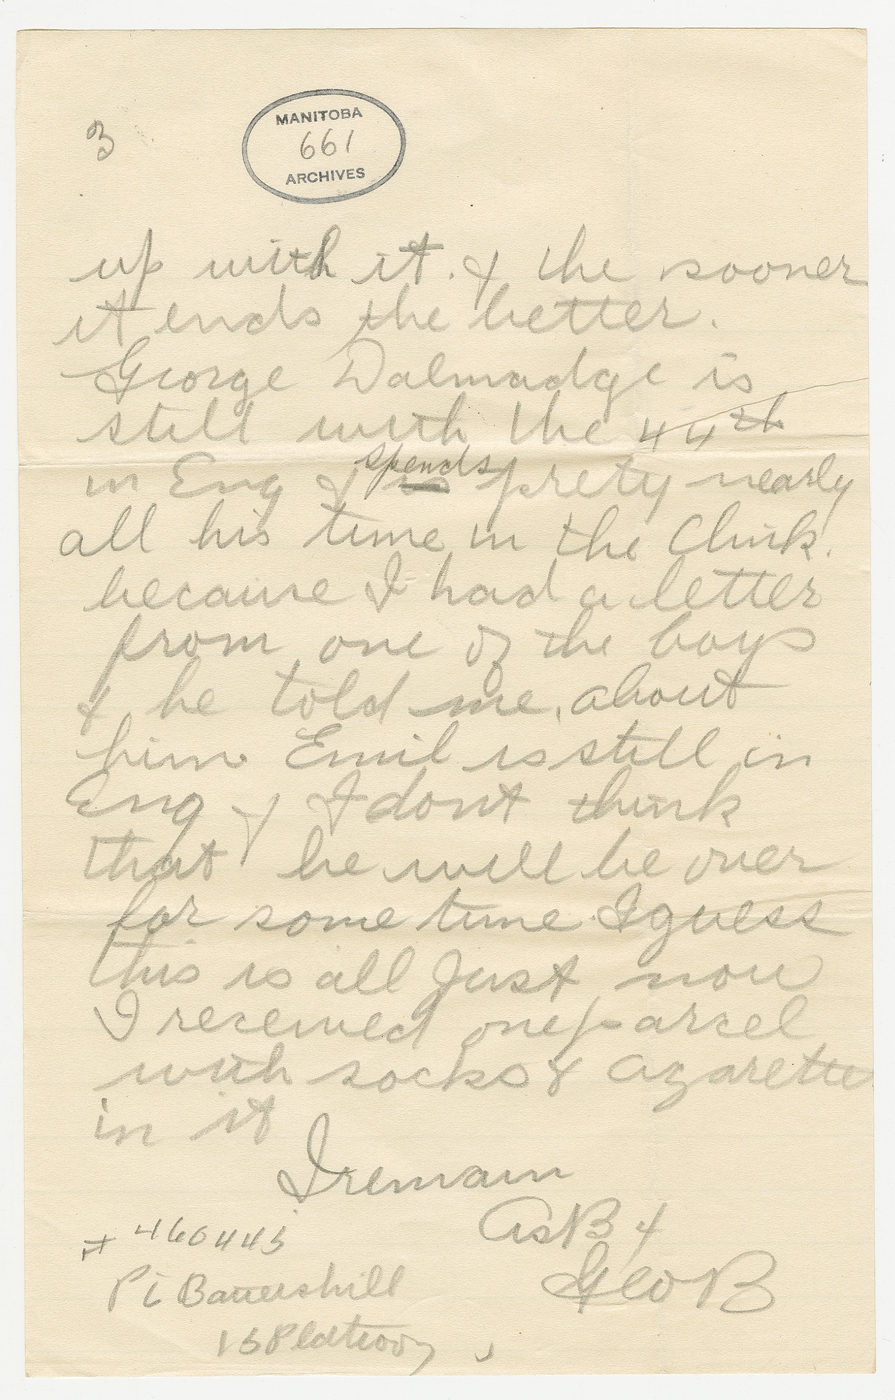 3
MANITOBA
661
ARCHIVES
up with it. & the sooner
it ends the better.
George Dalmadge is
still with the 44th
in Eng & spends prety nearly
all his time in the Clink.
because I had a letter
from one of the boys
& he told me, about
him. Emil is still in
Eng & I dont think
that he will be over
for some time. I guess
this is all Just now
I received one parcel
with socks & cigarette
in it
I remain
As B 4
Geo B
# 460445
Pt Battershill
15 Pldtroop